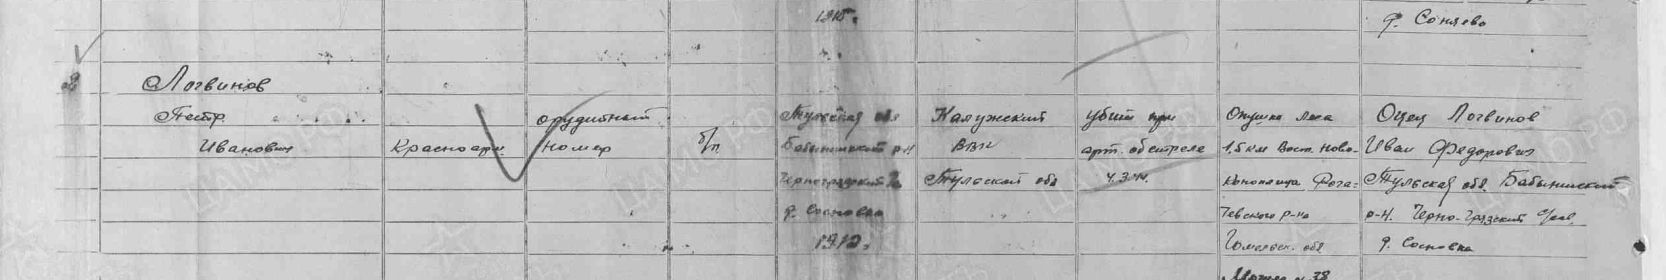 1915.
д. Соняево
Логвинов
Петр
Иванович
Красноарм
орудийный
номер
б/п
Тульская обл
Бабынинский р-н
Черногрязский
д. Сосновка
1912.
Калужский
ВВК
Тульской обл
убит при
арт. обстреле
4.3.44.
Опушка леса
1,5 км Вост. Ново-
Кононница Рога=
чевского р-на
Гомельск. обл
Могила № 38
Отец Логвинов
Иван Федорович
Тульская обл. Бабынинский
р-н. Черно-Грязский с/сов.
д. Сосновка